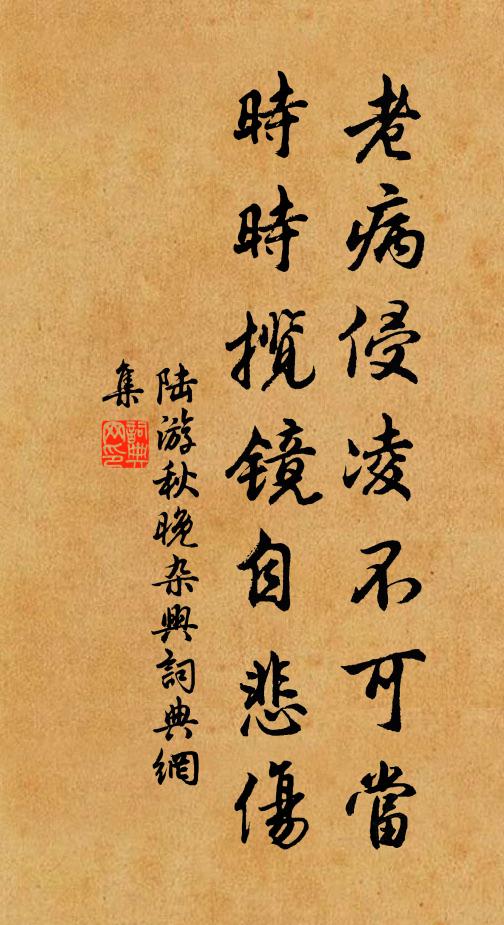 老病侵凌不可當
時時攬鏡自悲傷
陆游秋晚杂興詞典網
集
詞典
网印